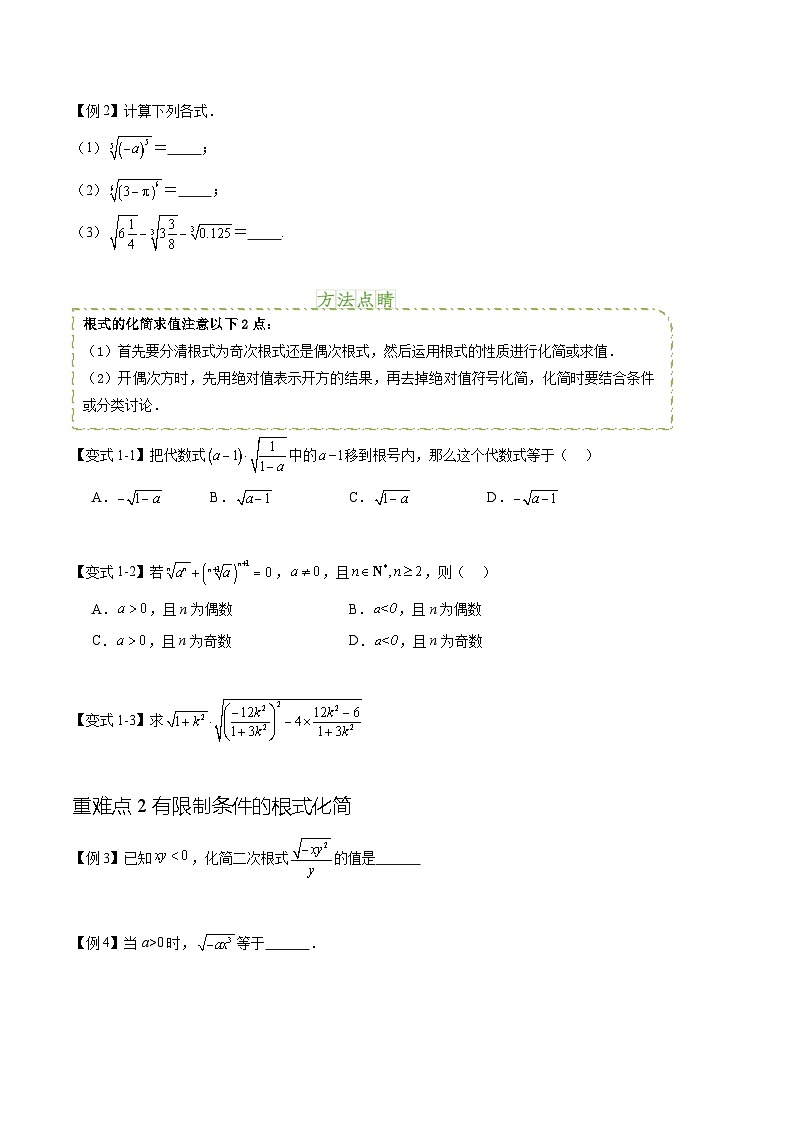 【例2】计算下列各式.
（1）$\sqrt[5]{(-a)^5}$＝_____;
（2）$\sqrt[6]{(3-\pi)^6}$＝_____;
（3）$\sqrt{6\frac{1}{4}}-\sqrt[3]{3\frac{3}{8}}-\sqrt[3]{0.125}$＝_____.
方法点睛
根式的化简求值注意以下2点:
（1）首先要分清根式为奇次根式还是偶次根式，然后运用根式的性质进行化简或求值.
（2）开偶次方时，先用绝对值表示开方的结果，再去掉绝对值符号化简，化简时要结合条件
或分类讨论.
【变式1-1】把代数式$(a-1)\cdot\sqrt{\frac{1}{1-a}}$中的$a-1$移到根号内，那么这个代数式等于（ ）
A. $-\sqrt{1-a}$ B. $\sqrt{a-1}$ C. $\sqrt{1-a}$ D. $-\sqrt{a-1}$
【变式1-2】若$\sqrt[n]{a^n}+(\sqrt[n+1]{a})^{n+1}=0$，$a\neq0$，且$n\in\mathbf{N}^*,n\geq2$，则（ ）
A. $a>0$，且n为偶数 B. $a<0$，且n为偶数
C. $a>0$，且n为奇数 D. $a<0$，且n为奇数
【变式1-3】求$\sqrt{1+k^2}\cdot\sqrt{\left(\frac{-12k^2}{1+3k^2}\right)^2-4\times\frac{12k^2-6}{1+3k^2}}$
重难点2有限制条件的根式化简
【例3】已知$xy<0$，化简二次根式$\frac{\sqrt{-xy^2}}{y}$的值是______
【例4】当a>0时，$\sqrt{-ax^3}$等于______.